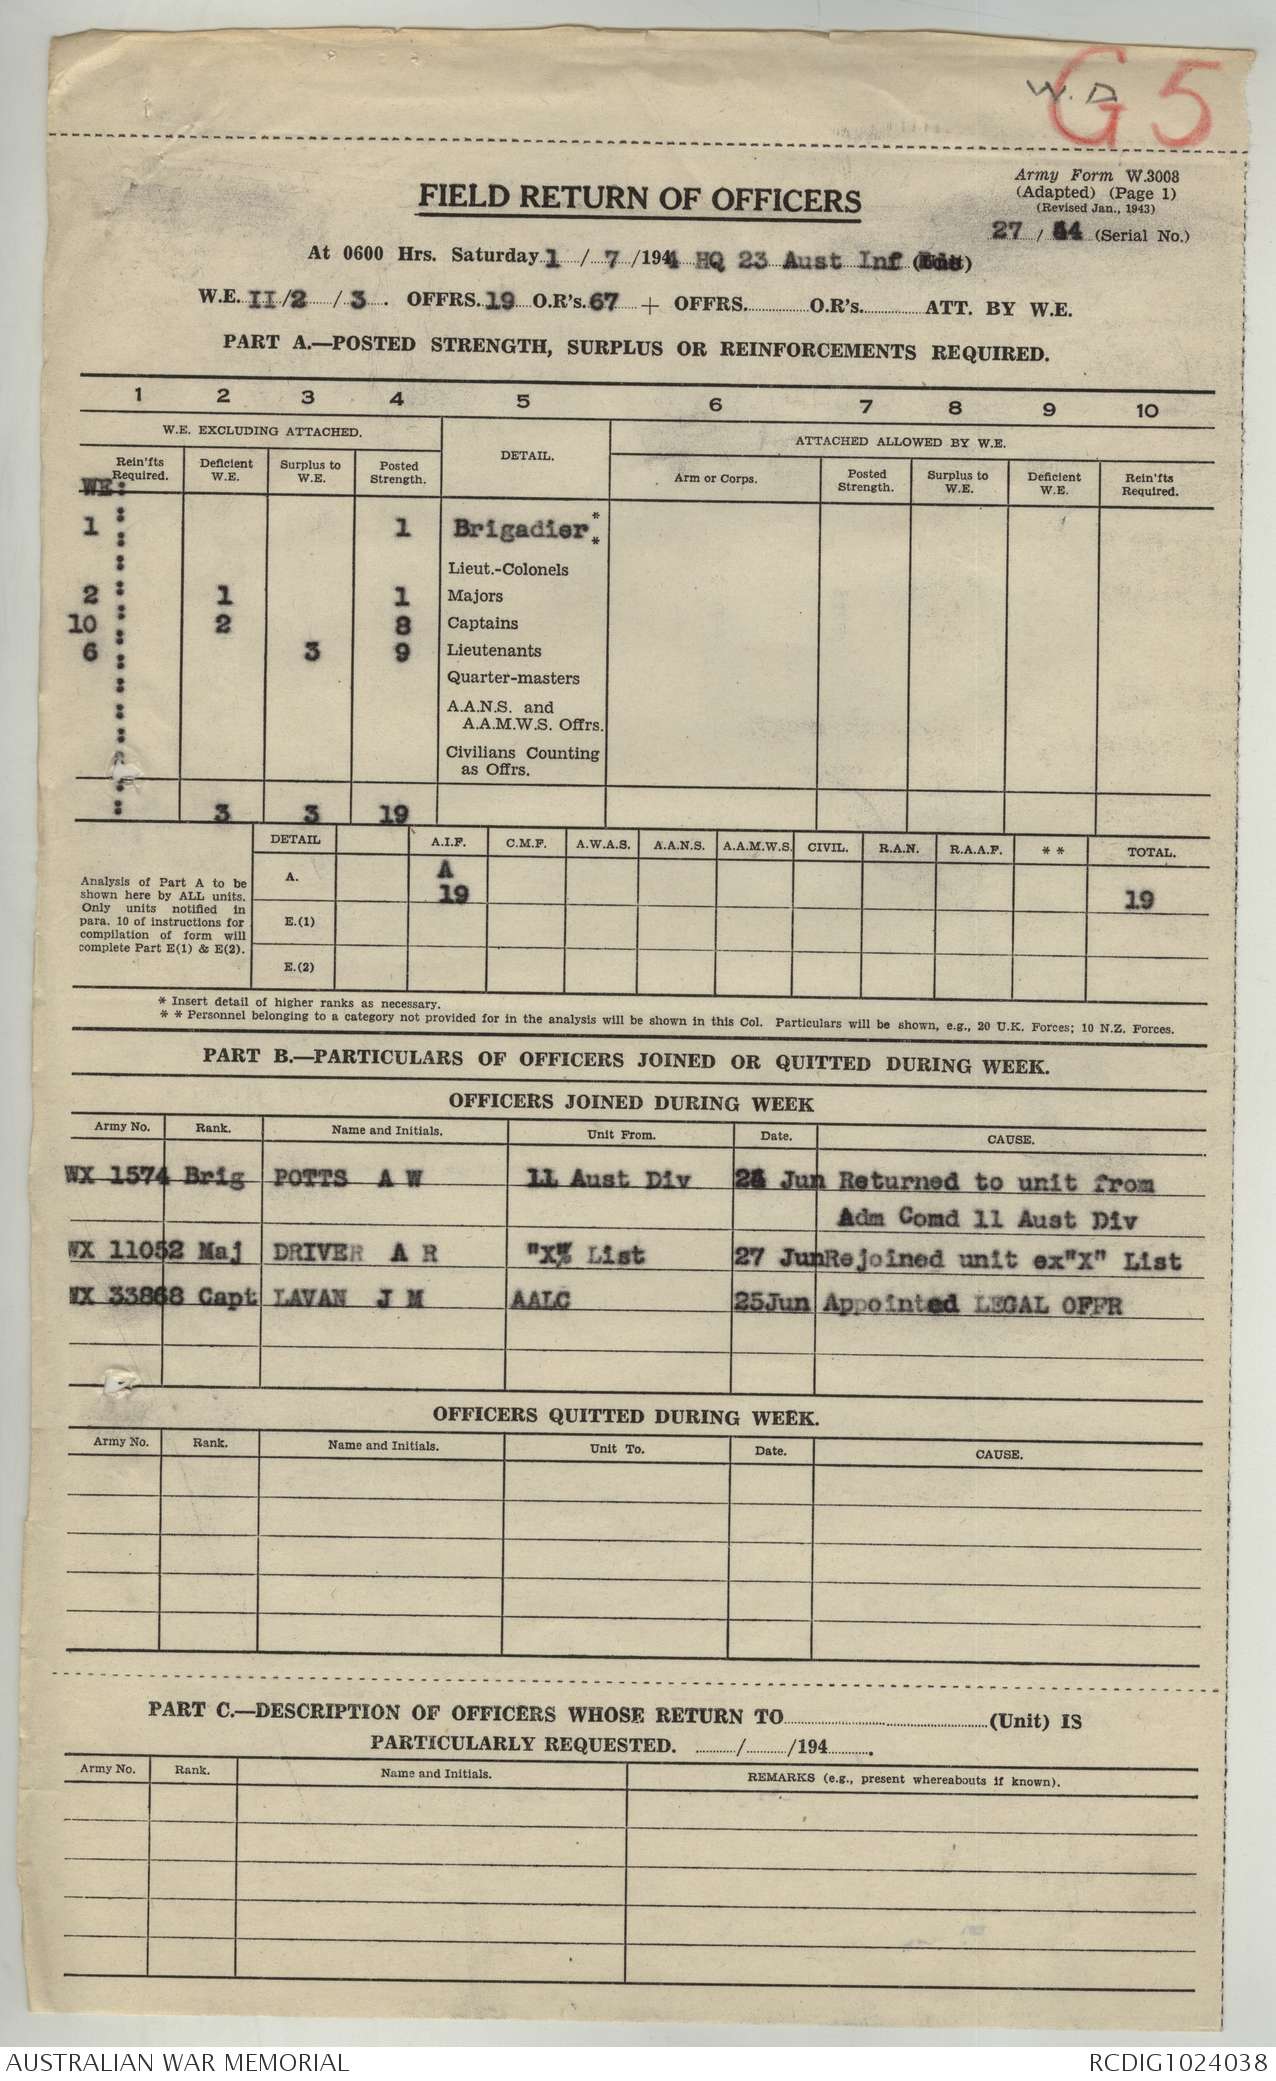 W.D
G5
Army Form W.3008
(Adapted) (Page 1)
(Revised Jan., 1943)
FIELD RETURN OF OFFICERS
27 / 44 (Serial No.)
At 0600 Hrs. Saturday 1 / 7 /1944 HQ 23 Aust Inf (Unit)
W.E. II/2 / 3 . OFFRS. 19 O.R's. 67 + OFFRS. O.R's. ATT. BY W.E.
PART A.—POSTED STRENGTH, SURPLUS OR REINFORCEMENTS REQUIRED.
1 2 3 4 5 6 7 8 9 10
W.E. EXCLUDING ATTACHED. DETAIL. ATTACHED ALLOWED BY W.E.
Rein'fts Required. Deficient W.E. Surplus to W.E. Posted Strength. Arm or Corps. Posted Strength. Surplus to W.E. Deficient W.E. Rein'fts Required.
WE:
1 : 1 Brigadier * *
Lieut.-Colonels
2 : 1 1 Majors
10 : 2 8 Captains
6 : 3 9 Lieutenants
Quarter-masters
A.A.N.S. and
A.A.M.W.S. Offrs.
Civilians Counting
as Offrs.
: 3 3 19
DETAIL A.I.F. C.M.F. A.W.A.S. A.A.N.S. A.A.M.W.S. CIVIL. R.A.N. R.A.A.F. * * TOTAL.
Analysis of Part A to be
shown here by ALL units.
Only units notified in
para. 10 of instructions for
compilation of form will
complete Part E(1) & E(2).
A. A
19 19
E.(1)
E.(2)
* Insert detail of higher ranks as necessary.
* * Personnel belonging to a category not provided for in the analysis will be shown in this Col. Particulars will be shown, e.g., 20 U.K. Forces; 10 N.Z. Forces.
PART B.—PARTICULARS OF OFFICERS JOINED OR QUITTED DURING WEEK.
OFFICERS JOINED DURING WEEK
Army No. Rank. Name and Initials. Unit From. Date. CAUSE.
WX 1574 Brig POTTS A W 11 Aust Div Jun Returned to unit from
Adm Comd 11 Aust Div
WX 11052 Maj DRIVER A R "X" List 27 Jun Rejoined unit ex"X" List
WX 33868 Capt LAVAN J M AALC 25Jun Appointed LEGAL OFFR
OFFICERS QUITTED DURING WEEK.
Army No. Rank. Name and Initials. Unit To. Date. CAUSE.
PART C.—DESCRIPTION OF OFFICERS WHOSE RETURN TO (Unit) IS
PARTICULARLY REQUESTED. / /194 .
Army No. Rank. Name and Initials. REMARKS (e.g., present whereabouts if known).
AUSTRALIAN WAR MEMORIAL RCDIG1024038